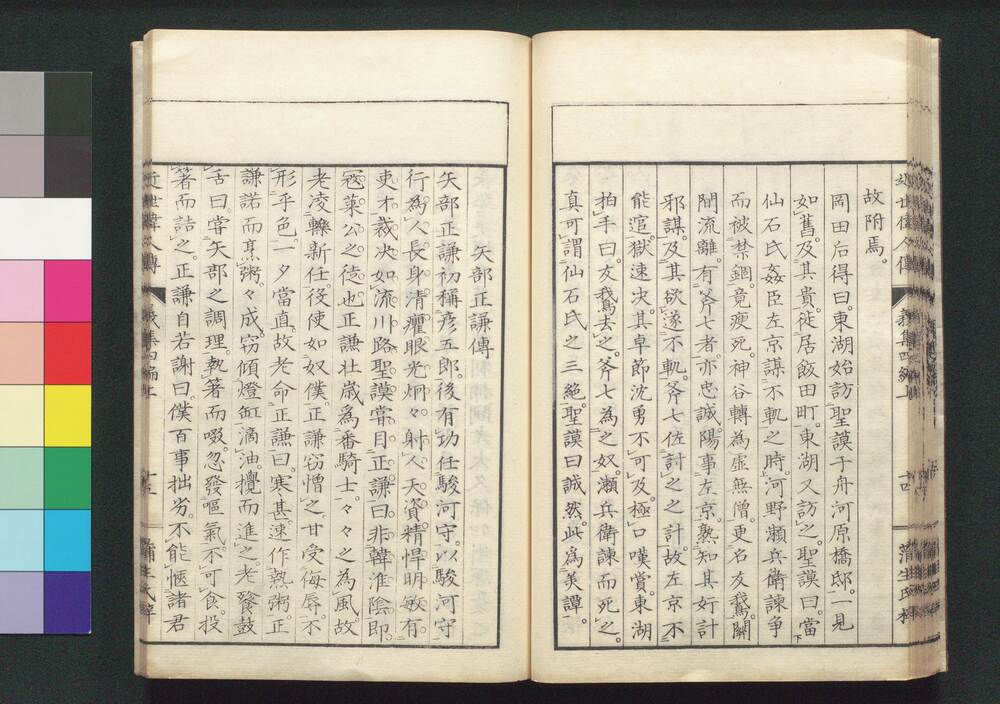 故附焉。
岡田后得曰。東湖始訪聖謨于舟河原橋邸。一見
如舊。及其貴。徙居飯田町。東湖又訪之。聖謨曰。當
仙石氏姦臣左京謀不軌之時。河野瀬兵衛諫爭
而被禁錮。竟瘐死。神谷轉為虚無僧。更名友鵞。關
間流離。有斧七者。亦忠誠。陽事左京。熟知其奸計
邪謀。及其欲遂不軌。斧七佐討之之計。故左京不
能遁。獄速決。其卓節沈勇不可及。極口嘆賞。東湖
拍手曰。友鵞去之。斧七為之奴。瀬兵衛諫而死之。
真可謂仙石氏之三絶。聖謨曰誠然。此為美譚。
矢部正謙傳
矢部正謙初稱彦五郎。後有功任駿河守。以駿河守
行。為人長身清癯眼光炯々。射人。天資精悍明敏。有
吏才。裁決如流。川路聖謨常目正謙曰。非韓淮陰。即
寇萊公之徒也。正謙壮歳為番騎士。々々之為風。故
老凌轢新任。役使如奴僕。正謙窃憎之。甘受侮辱。不
形乎色。一夕當直。故老命正謙曰。寒甚。速作熱粥。正
謙諾而烹粥。々成。窃傾燈缸。滴油。攪而進之。老饕鼓
舌曰。嘗矢部之調理。執著而啜。忽發嘔氣。不可食。投
著而詰之。正謙自若謝曰。僕百事拙劣。不能愜諸君
近世偉人傳
義集四編上
蒲生氏梓